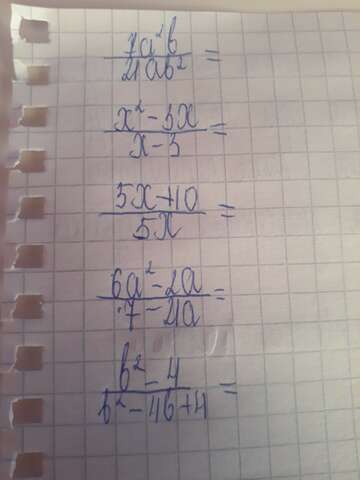 7a²b / 21ab² =
x² - 3x / x - 3 =
5x + 10 / 5x =
6a² - 2a / 7 - 21a =
b² - 4 / b² - 4b + 4 =